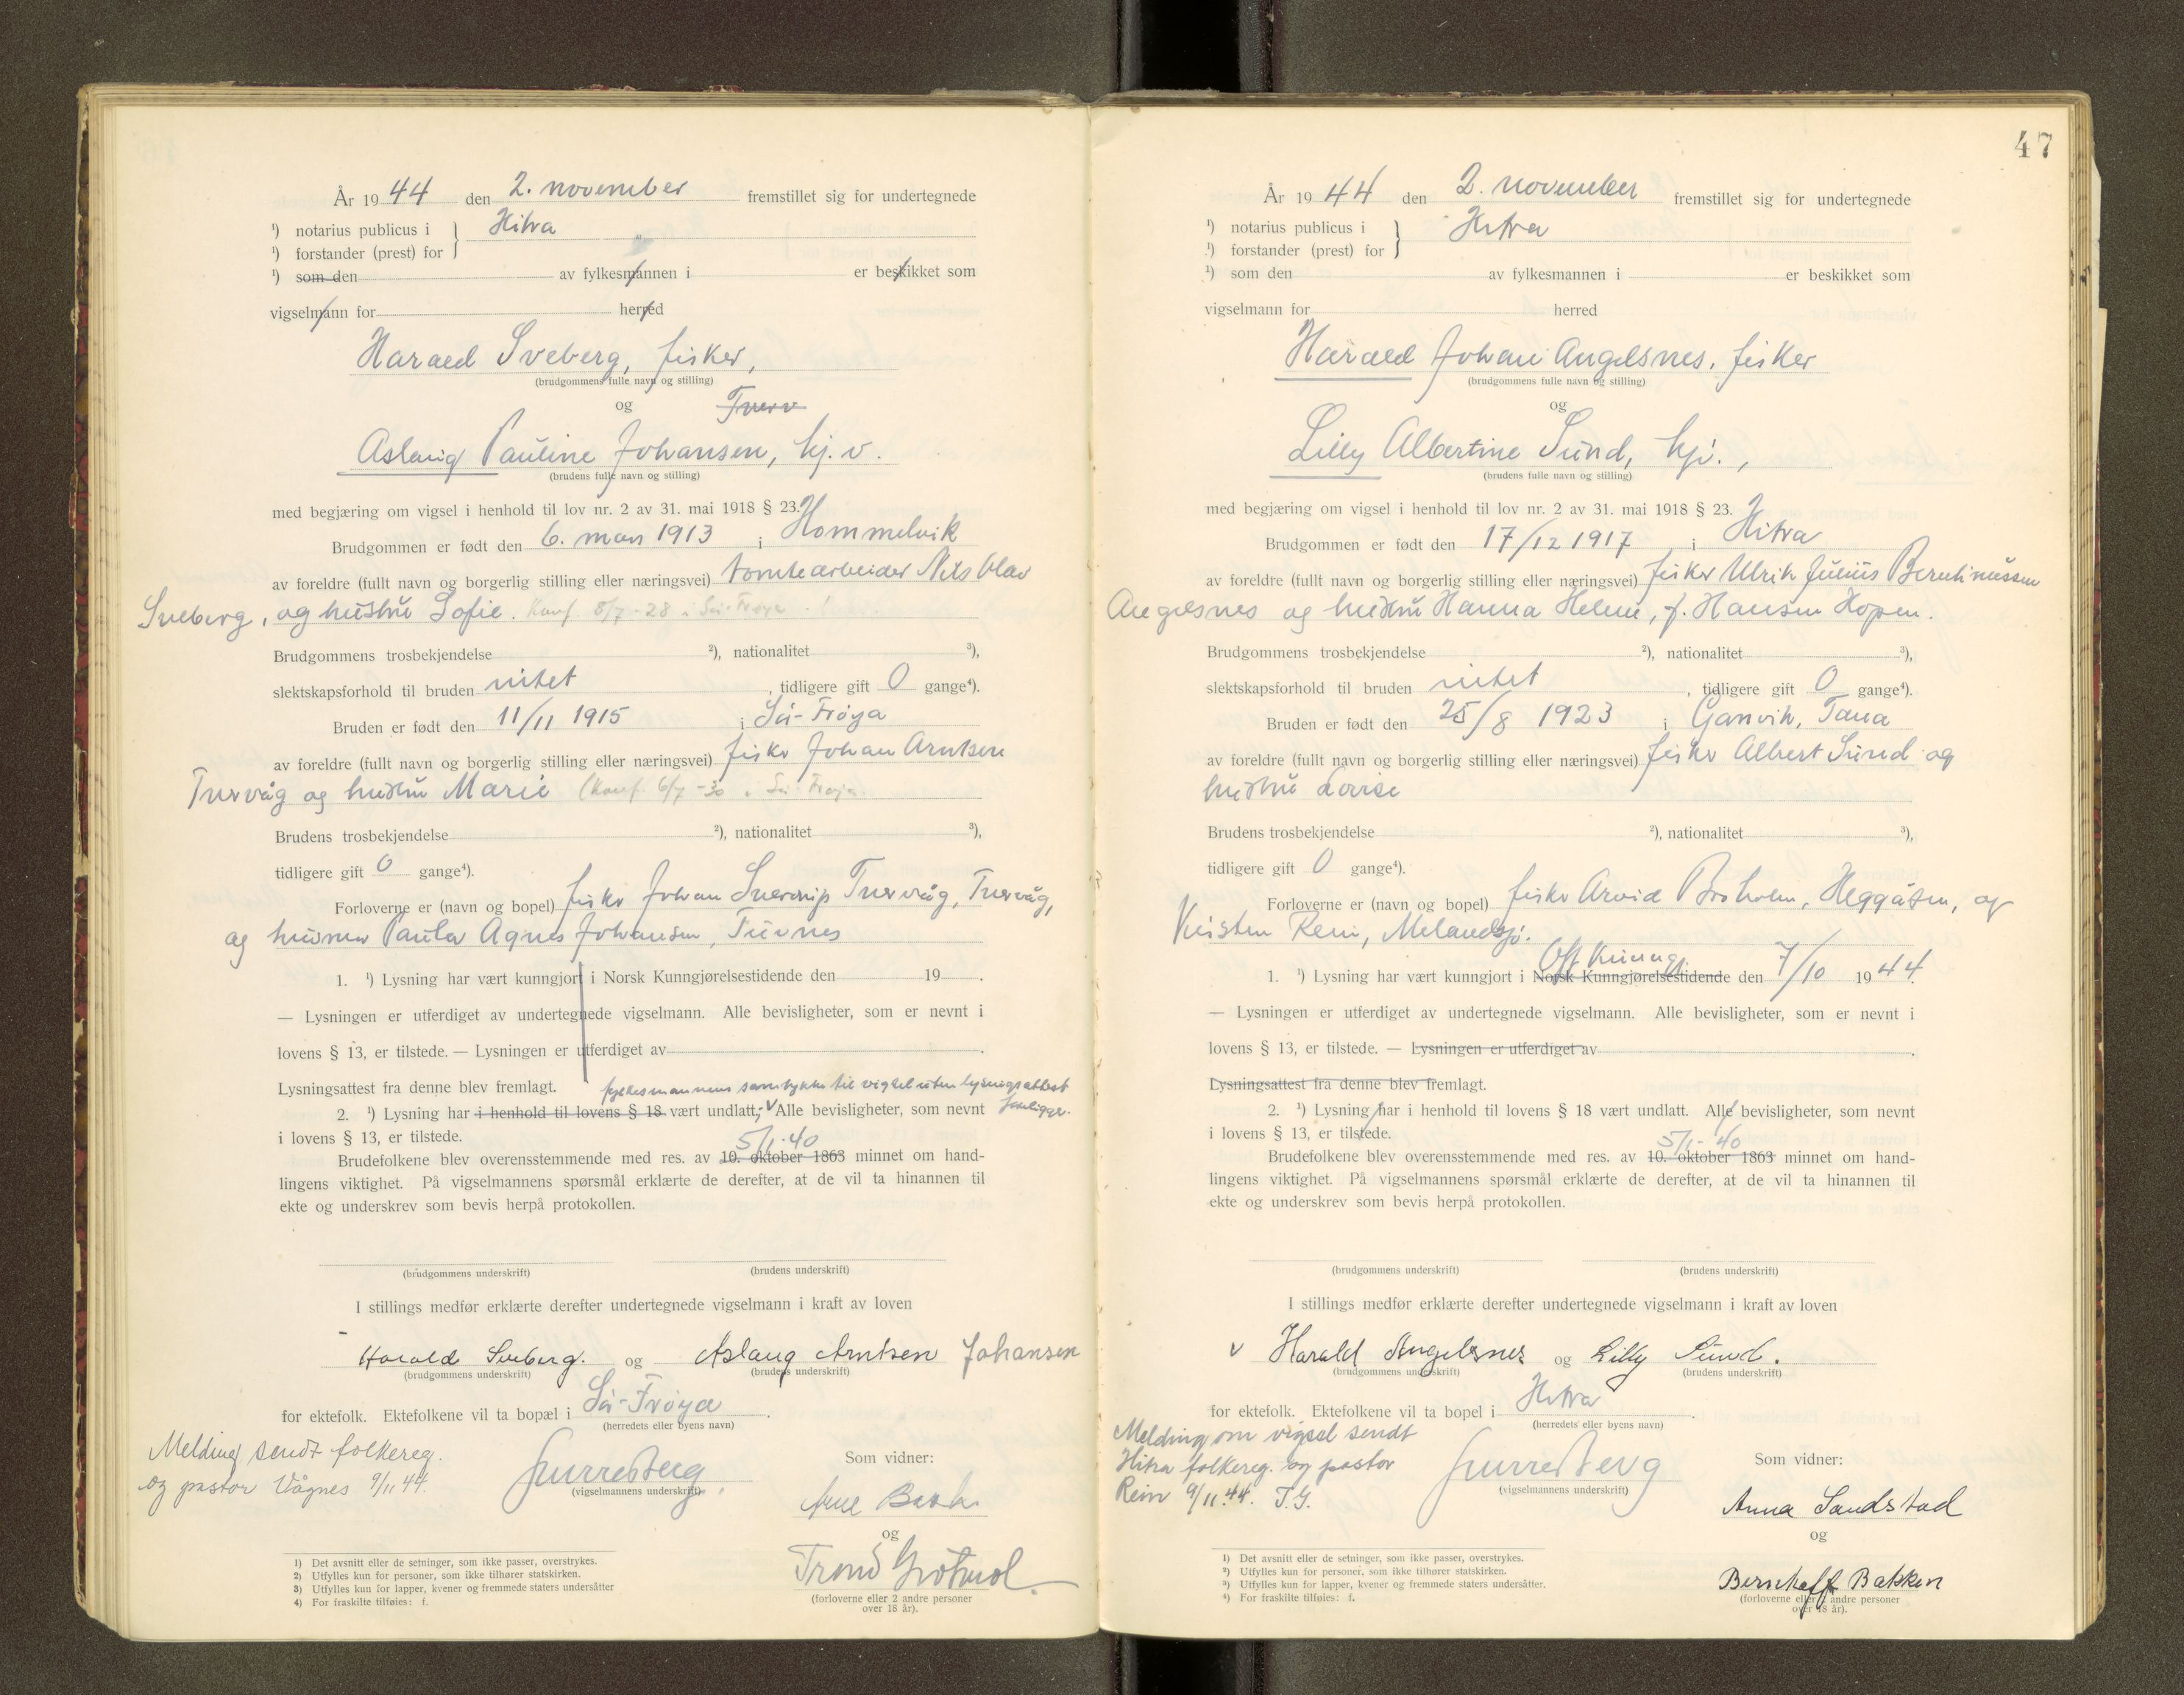 År 19 44 den 2. november fremstillet sig for undertegnede
¹) notarius publicus i } Hitra
¹) forstander (prest) for
¹) som den av fylkesmannen i er beskikket som
vigselmann for herred
Harald Sveberg, fisker,
(brudgommens fulle navn og stilling)
og
Aslaug Pauline Johansen, hj. v.
(brudens fulle navn og stilling)
med begjæring om vigsel i henhold til lov nr. 2 av 31. mai 1918 § 23.
Brudgommen er født den 6. mars 1913 i Hommelvik
av foreldre (fullt navn og borgerlig stilling eller næringsvei) tomtearbeider Nils Olav
Sveberg, og hustru Sofie. Konf. 8/7-28 i Sør-Frøya.
Brudgommens trosbekjendelse ²), nationalitet ³),
slektskapsforhold til bruden intet, tidligere gift 0 gange⁴).
Bruden er født den 11/11 1915 i Sør-Frøya
av foreldre (fullt navn og borgerlig stilling eller næringsvei) fisker Johan Arntsen
Tuervåg og hustru Marie (Konf. 6/7-30 i Sør-Frøya.
Brudens trosbekjendelse ²), nationalitet ³),
tidligere gift 0 gange⁴).
Forloverne er (navn og bopel) fisker Johan Sverdrup Tuervåg, Tuervåg,
og husmor Paula Agnes Johansen, Tuvnes
1. ¹) Lysning har vært kunngjort i Norsk Kunngjørelsestidende den 19 .
— Lysningen er utferdiget av undertegnede vigselmann. Alle bevisligheter, som er nevnt i
lovens § 13, er tilstede. — Lysningen er utferdiget av .
Lysningsattest fra denne blev fremlagt. fylkesmannens samtykke til vigsel uten lysningsattest
2. ¹) Lysning har i henhold til lovens § 18 vært undlatt, Alle bevisligheter, som nevnt foreligger.
i lovens § 13, er tilstede. 5/1-40
Brudefolkene blev overensstemmende med res. av 10. oktober 1863 minnet om hand-
lingens viktighet. På vigselmannens spørsmål erklærte de derefter, at de vil ta hinannen til
ekte og underskrev som bevis herpå protokollen.
(brudgommens underskrift) (brudens underskrift)
I stillings medfør erklærte derefter undertegnede vigselmann i kraft av loven
Harald Sveberg. og Aslaug Arntsen Johansen
(brudgommens underskrift) (brudens underskrift)
for ektefolk. Ektefolkene vil ta bopæl i Sør-Frøya .
(herredets eller byens navn)
Melding sendt folkereg.
og pastor Vågnes 9/11 44.
(vigselmannens underskrift)
Som vidner:
Arne Bakk
og
Trond
(forloverne eller 2 andre personer
over 18 år).
1) Det avsnitt eller de setninger, som ikke passer, overstrykes.
2) Utfylles kun for personer, som ikke tilhører statskirken.
3) Utfylles kun for lapper, kvener og fremmede staters undersåtter
4) For fraskilte tilføies: f.
47
År 19 44 den 2. november fremstillet sig for undertegnede
¹) notarius publicus i } Hitra
¹) forstander (prest) for
¹) som den av fylkesmannen i er beskikket som
vigselmann for herred
Harald Johan Angelsnes, fisker
(brudgommens fulle navn og stilling)
og
Lilly Albertine Sund, hj.,
(brudens fulle navn og stilling)
med begjæring om vigsel i henhold til lov nr. 2 av 31. mai 1918 § 23.
Brudgommen er født den 17/12 1917 i Hitra
av foreldre (fullt navn og borgerlig stilling eller næringsvei) fisker Ulrik Julius Berntinussen
Angelsnes og hustru Hanna Helene, f. Hansen Hopen.
Brudgommens trosbekjendelse ²), nationalitet ³),
slektskapsforhold til bruden intet, tidligere gift 0 gange⁴).
Bruden er født den 25/8 1923 i Ganvik, Tana
av foreldre (fullt navn og borgerlig stilling eller næringsvei) fisker Albert Sund og
hustru Lovise
Brudens trosbekjendelse ²), nationalitet ³),
tidligere gift 0 gange⁴).
Forloverne er (navn og bopel) fisker Arvid Broholm, Heggåsen, og
Kristen Rein, Melandsjø.
1. ¹) Lysning har vært kunngjort i Norsk Kunngjørelsestidende Off. Kunng. den 7/10 19 44.
— Lysningen er utferdiget av undertegnede vigselmann. Alle bevisligheter, som er nevnt i
lovens § 13, er tilstede. — Lysningen er utferdiget av .
Lysningsattest fra denne blev fremlagt.
2. ¹) Lysning har i henhold til lovens § 18 vært undlatt. Alle bevisligheter, som nevnt
i lovens § 13, er tilstede. 5/1-40
Brudefolkene blev overensstemmende med res. av 10. oktober 1863 minnet om hand-
lingens viktighet. På vigselmannens spørsmål erklærte de derefter, at de vil ta hinannen til
ekte og underskrev som bevis herpå protokollen.
(brudgommens underskrift) (brudens underskrift)
I stillings medfør erklærte derefter undertegnede vigselmann i kraft av loven
v Harald Angelsnes og Lilly Sund.
(brudgommens underskrift) (brudens underskrift)
for ektefolk. Ektefolkene vil ta bopel i Hitra .
(herredets eller byens navn)
Melding om vigsel sendt
Hitra folkereg. og pastor
Rein 9/11.44. T.G.
(vigselmannens underskrift)
Som vidner:
Anna Sandstad
og
Bernhoff Bakken
(forloverne eller andre personer
over 18 år).
1) Det avsnitt eller de setninger, som ikke passer, overstrykes.
2) Utfylles kun for personer, som ikke tilhører statskirken.
3) Utfylles kun for lapper, kvener og fremmede staters undersåtter.
4) For fraskilte tilføies: f.